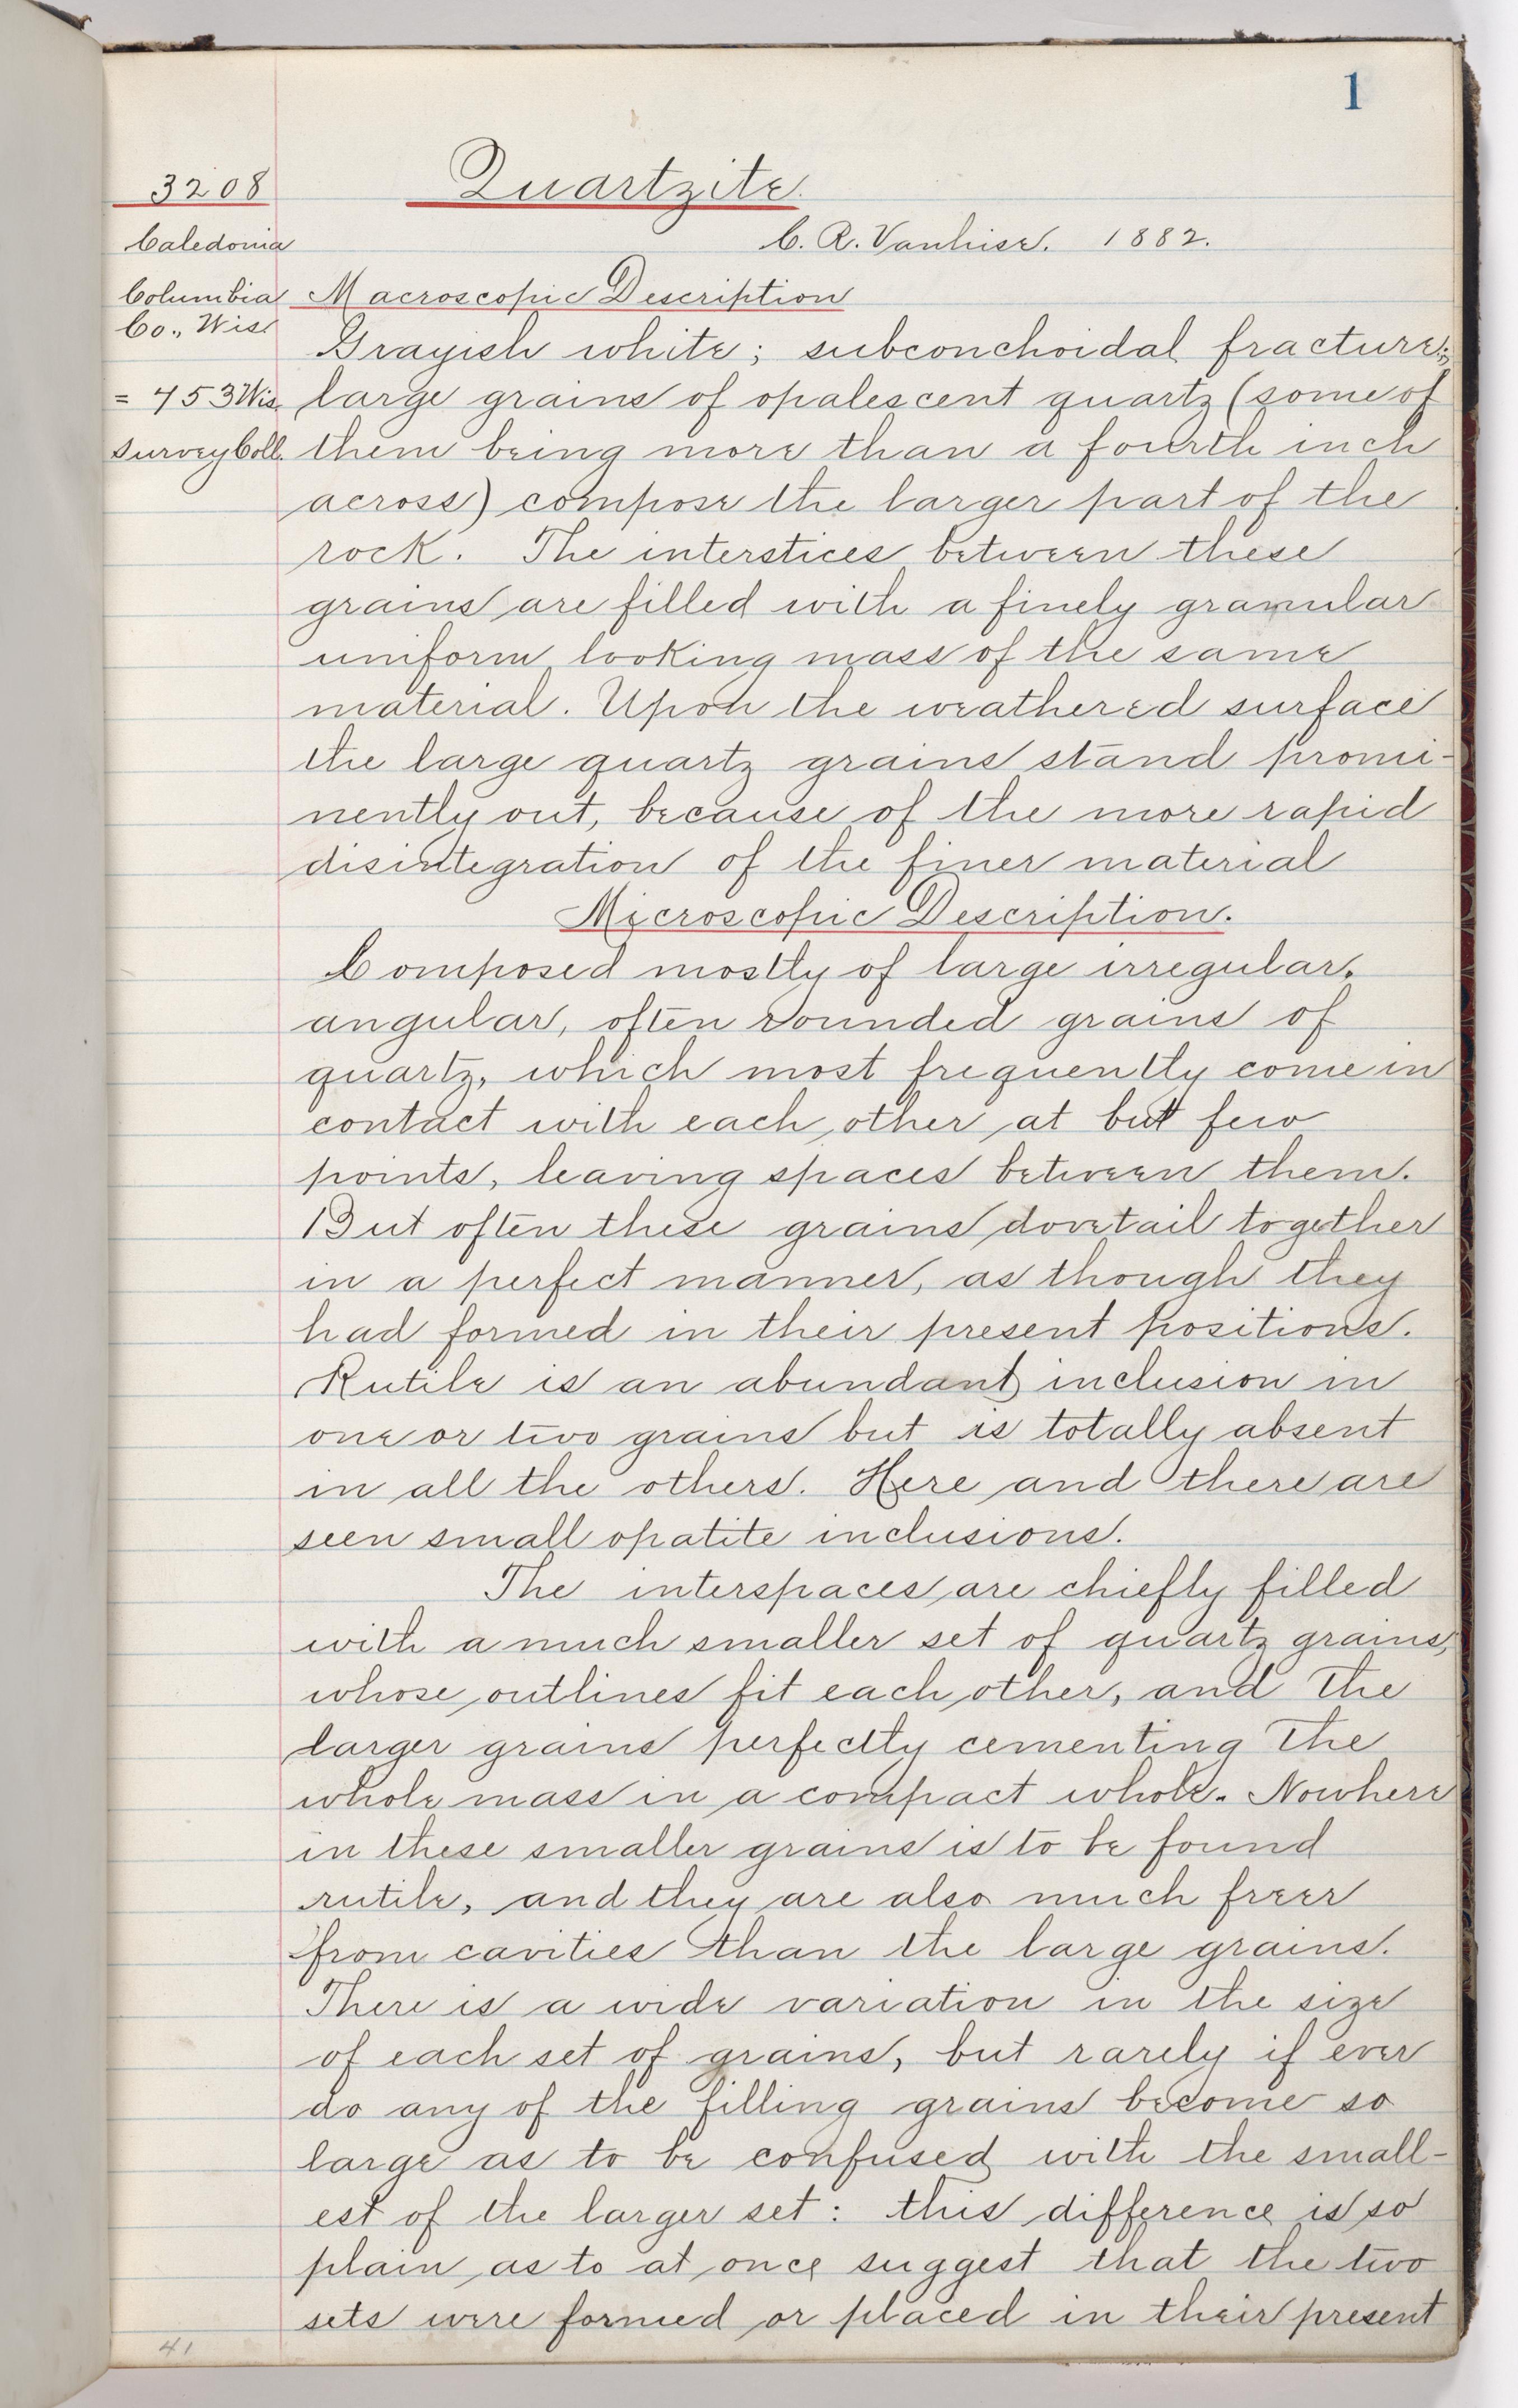 1
3208
Quartzite.
Caledonia
C. R. Vanhise. 1882.
Columbia
Co., Wis.
= 453 Wis.
Survey Coll.
Macroscopic Description
Grayish white; subconchoidal fracture;
large grains of opalescent quartz (some of
them being more than a fourth inch
across) compose the larger part of the
rock. The interstices between these
grains are filled with a finely granular
uniform looking mass of the same
material. Upon the weathered surface
the large quartz grains stand promi-
nently out, because of the more rapid
disintegration of the finer material
Microscopic Description.
Composed mostly of large irregular,
angular, often rounded grains of
quartz, which most frequently come in
contact with each other at but few
points, leaving spaces between them.
But often these grains dovetail together
in a perfect manner, as though they
had formed in their present positions.
Rutile is an abundant inclusion in
one or two grains but is totally absent
in all the others. Here and there are
seen small apatite inclusions.
The interspaces are chiefly filled
with a much smaller set of quartz grains,
whose outlines fit each other, and the
larger grains perfectly cementing the
whole mass in a compact whole. Nowhere
in these smaller grains is to be found
rutile, and they are also much freer
from cavities than the large grains.
There is a wide variation in the size
of each set of grains, but rarely if ever
do any of the filling grains become so
large as to be confused with the small-
est of the larger set: this difference is so
plain as to at once suggest that the two
sets were formed or placed in their present
41